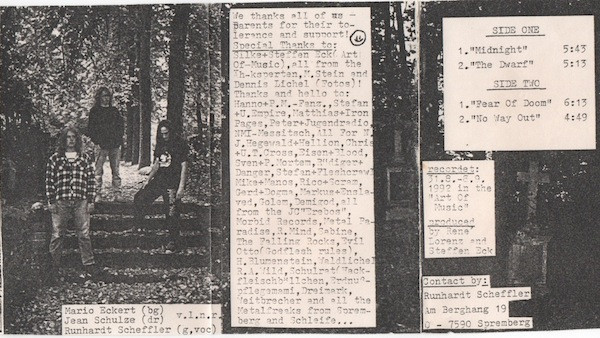 Mario Eckert (bg)
Jean Schulze (dr)
Runhardt Scheffler (g,voc)
v.l.n.r.
We thanks all of us -
Barents for their to-
lerence and support!
Special Thanks to:
Silke+Steffen Eck( Art
Of-Music),all from the
M.Stein and
Dennis Lichel (Fotos)!
Thanks and hello to:
Hanno+P.M.-Fans,,Stefan
+U.Empire,Matthias+Iron
Pages,Peter+Jugendradio,
NMI-Messitsch,All For N.
J.Hagewald+Hellion,Chris
Sven+P.Morten,Rüdiger+
Danger,Stefan+Fleshcrawl
Mike+Manos,Rico+Gorex,
Gert+Dooms,Markus+Ensla-
ved,Golem,Demized,all
from the JC"Erebos"
Morbid Records,Metal Pa-
radise,R.Mind,Sabine,
The Falling Rocks,Evil
Otto(Godflesh rules),
H.Blumenstein,Waldliebel
R.A.Wild,Schulrat(Hack-
fleischbällchen,
Dreimark,
Weitbrecher and all the
Metalfreaks from Sprem-
berg and Schleife...
SIDE ONE
1."Midnight" 5:43
2."The Dwarf" 5:13
SIDE TWO
1."Fear Of Doom" 6:13
2."No Way Out" 4:49
recordet:
31.8.-2.9.
1992 in the
"Art Of
Music"
produced
by René
Lorenz and
Steffen Eck
Contact by:
Runhardt Scheffler
Am Berghang 19
O - 7590 Spremberg